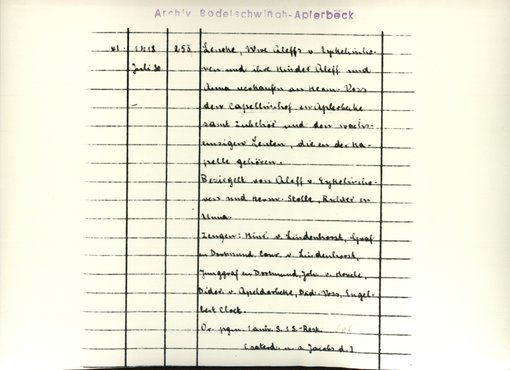 Archiv Bodelschwingh-Aplerbeck
41. 1418 253 Leneke, Wwe Aleffs v. Eykelincho-
Juli 30 ven und ihre Kinder Aleff und
Anna verkaufen an Herm. Voss
den Capellenhof in Aplerbeke
samt Zubehör und den wachs-
zinsigen Leuten, die zu der Ka-
pelle gehören.
Besiegelt von Aleff v. Eykelincho-
ven und Herm. Stolle, Richter in
Unna.
Zeugen: Hinr. v. Lindenhorst, Graf
in Dortmund, Conr. v. Lindenhorst,
Junggraf in Dortmund, Joh. v.
Dider. v. Apelderbeke, Did. Voss, Engel-
bert Cloet.
Or. pgm. 1 anh. S. 1 S.-Rest.
(saterd. n. s. Jacobs d.)